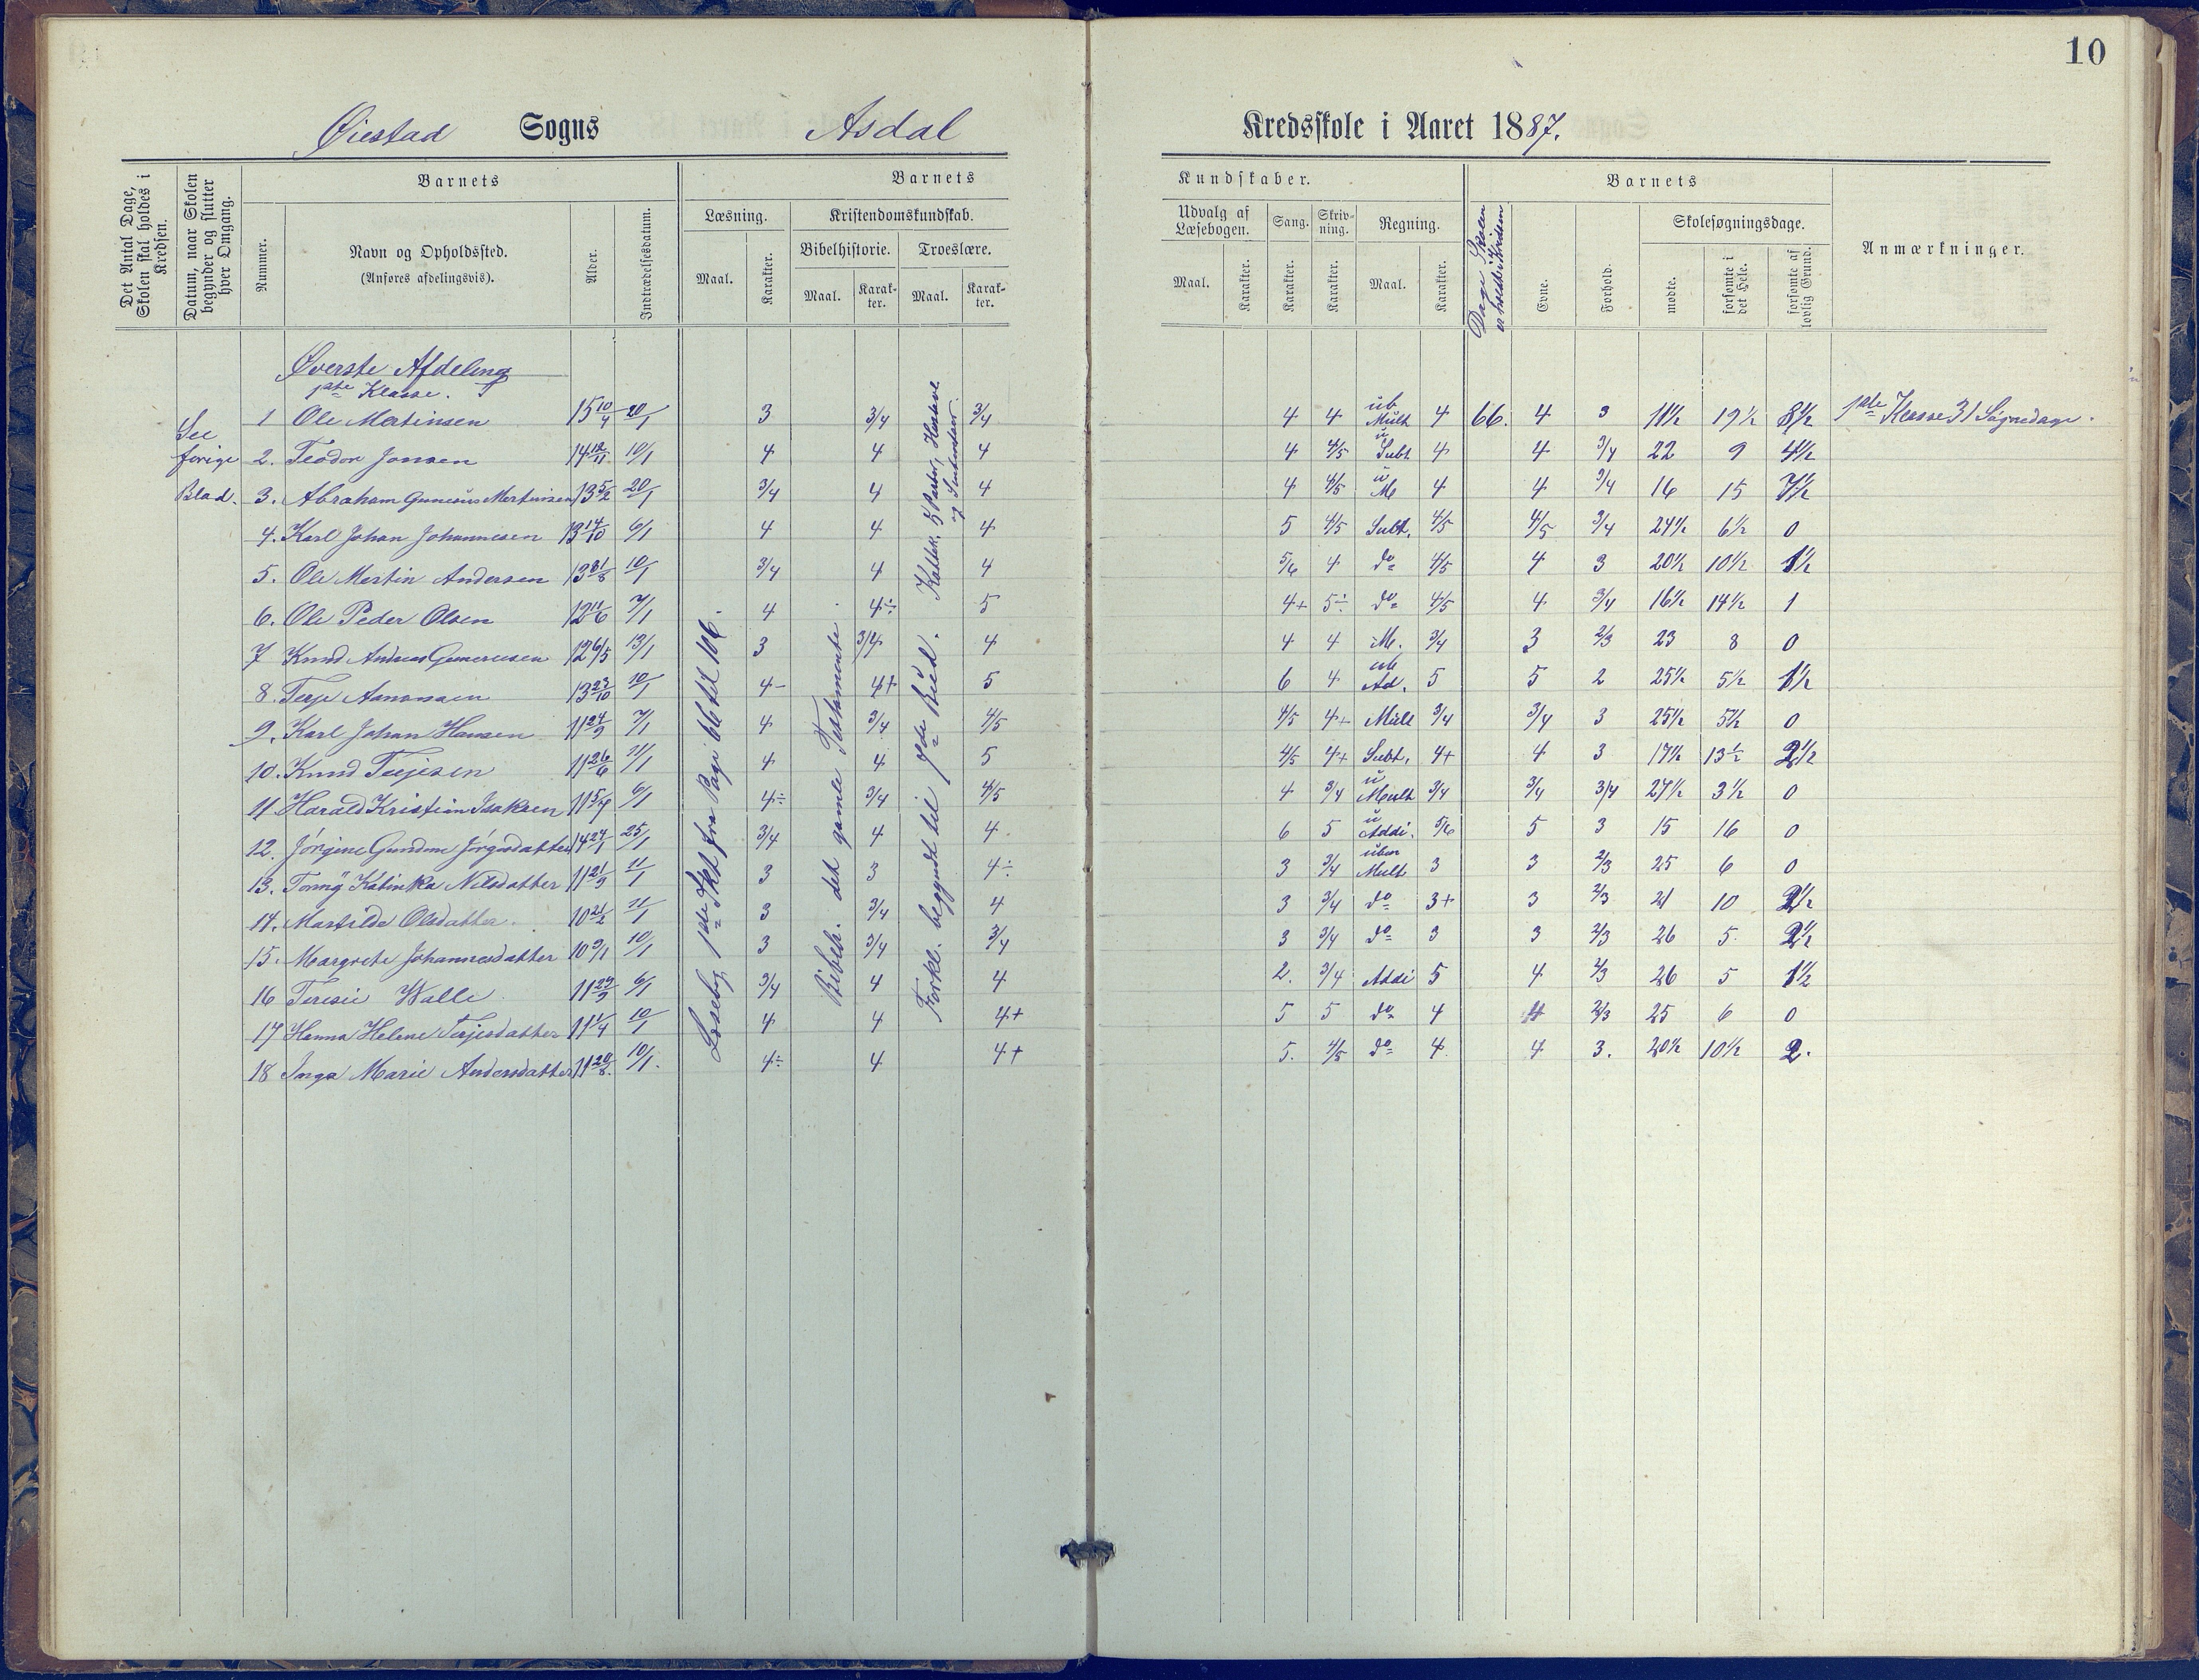 10
Øiestad Sogns Asdal Kredsskole i Aaret 1887.
Det Antal Dage, Skolen skal holdes i Kredsen.
Datum, naar Skolen begynder og slutter hver Omgang.
Barnets
Nummer.
Navn og Opholdssted.
(Anføres afdelingsvis).
Alder.
Indtrædelsesdatum.
Barnets
Læsning.
Maal.
Karakter.
Kristendomskundskab.
Bibelhistorie.
Maal.
Karakter.
Troeslære.
Maal.
Karakter.
Kundskaber.
Udvalg af Læsebogen.
Maal.
Karakter.
Sang.
Karakter.
Skrivning.
Karakter.
Regning.
Maal.
Karakter.
Dage Skolen er holdt i Kredsen
Barnets
Evne.
Forhold.
Skolesøgningsdage.
mødte.
forsømte i det Hele.
forsømte af lovlig Grund.
Anmærkninger.
Øverste Afdeling
1ste Klasse.
See forige Blad.
1 Ole Martinsen 15 10/4 20/1 3 3/4 3/4 4 4 ub Mult 4 66. 4 3 11½ 19½ 8½ 1ste Klasse 31 Søgnedage.
2. Teodor Jonsen 14 12/11 10/1 4 4 4 4 4/5 u Subt 4 4 3/4 22 9 4½
3. Abraham Gunerius Martinsen 13 5/2 20/1 3/4 4 4 4 4/5 u M 4 4 3/4 16 15 7½
4. Karl Johan Johannesen 13 14/10 6/1 4 4 4 5 4/5 Subt. 4/5 4/5 3/4 24½ 6½ 0
5. Ole Martin Andersen 13 31/8 10/1 3/4 4 4 5/6 4 do 4/5 4 3 20½ 10½ 1½
6. Ole Peder Olsen 12 11/6 7/1 4 4÷ 5 4+ 5÷ do 4/5 4 3/4 16½ 14½ 1
7 Knud Andreas Gunerusen 12 6/5 13/1 3 3/4 4 4 4 M. 3/4 3 2/3 23 8 0
8. Terje Aanonsen 13 23/10 10/1 4- 4+ 5 6 4 Ad. 5 5 2 25½ 5½ 1½
9. Karl Johan Hansen 11 24/9 7/1 4 3/4 4/5 4/5 4+ Mult 3/4 3/4 3 25½ 5½ 0
10. Knud Terjesen 11 26/6 11/1 4 4 5 4/5 4+ Subt. 4+ 4 3 17½ 13½ 2½
11. Harald Kristian Isaksen 11 5/7 6/1 4÷ 3/4 4/5 4 3/4 u Mult 3/4 3/4 3/4 27½ 3½ 0
12. Jørgine Gundine Jørgensdatter 14 24/1 25/1 3/4 4 4 6 5 u Addi. 5/6 5 3 15 16 0
13. Tonny Katinka Nilsdatter 11 21/9 11/1 3 3 4÷ 3 3/4 uben Mult 3 3 2/3 25 6 0
14. Matilde Olsdatter. 10 21/2 11/1 3 3/4 4 3 3/4 do 3+ 3 2/3 21 10 2½
15. Margrete Johannesdatter 10 9/1 10/1 3 3/4 3/4 3 3/4 do 3 3 2/3 26 5 2½
16 Teresie Walle 11 29/9 6/1 3/4 4 4 2. 3/4 Addi 5 4 2/3 26 5 1½
17 Hanna Helene Terjesdatter 11 1/4 10/1 4 4 4+ 5 5 do 4 4 2/3 25 6 0
18 Inga Marie Andersdatter 11 20/8 10/1. 4÷ 4 4+ 5. 4/5 do 4 4 3. 20½ 10½ 2.
Læsebog 1ste Skt fra Page 66 til 106.
Bibelh. det gamle Testamente.
Forkl. begyndt til 7de Bud.
Katek. 5 Parter, Hustavle